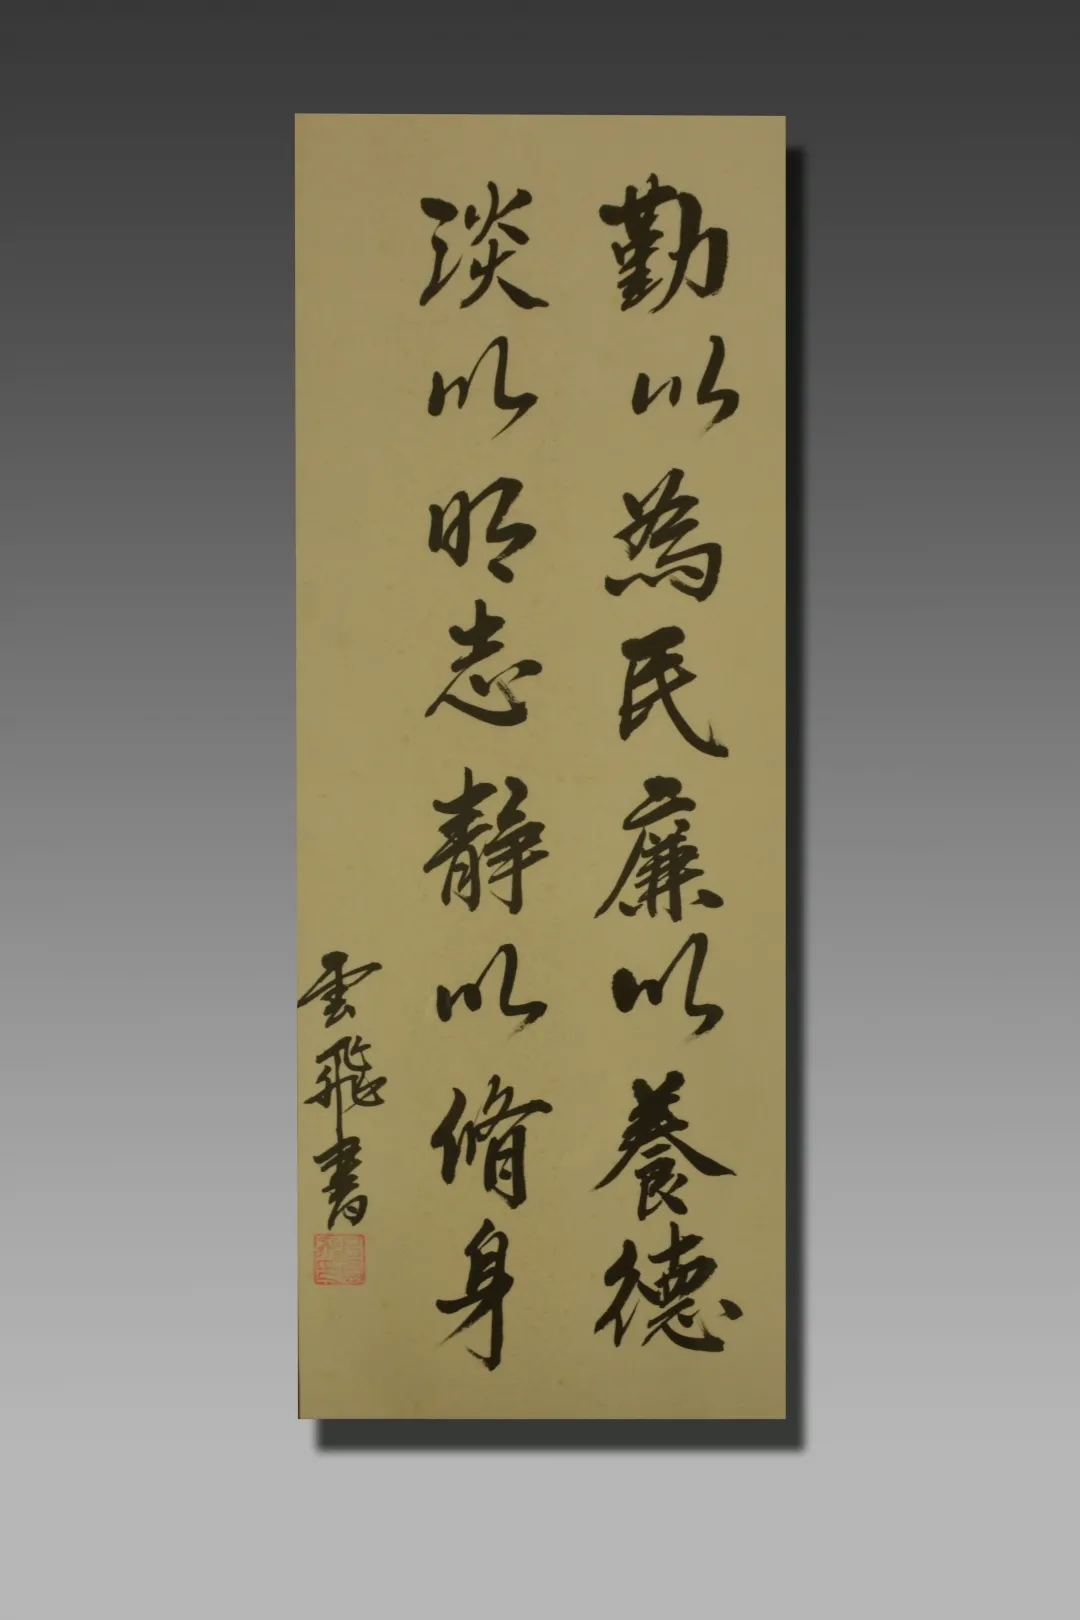 勤以為民廉以養德
淡以明志靜以脩身
雲飛書